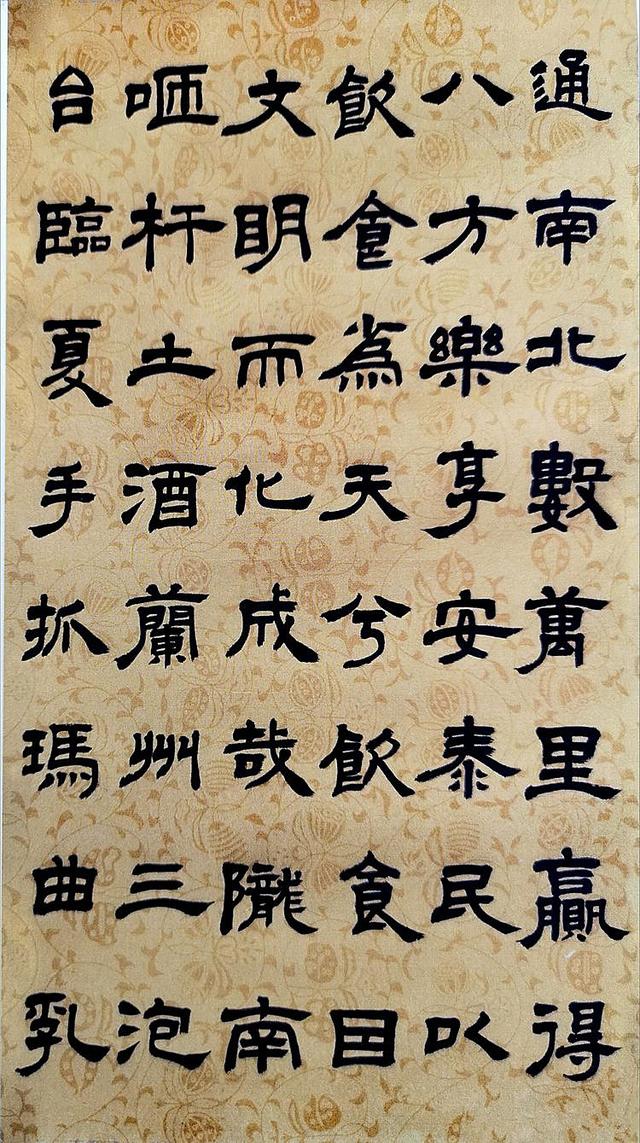 通南北數萬里贏得
八方樂享安泰民以
飲食為天兮飲食因
文明而化成哉隴南
咂杆土酒蘭州三泡
台臨夏手抓瑪曲乳